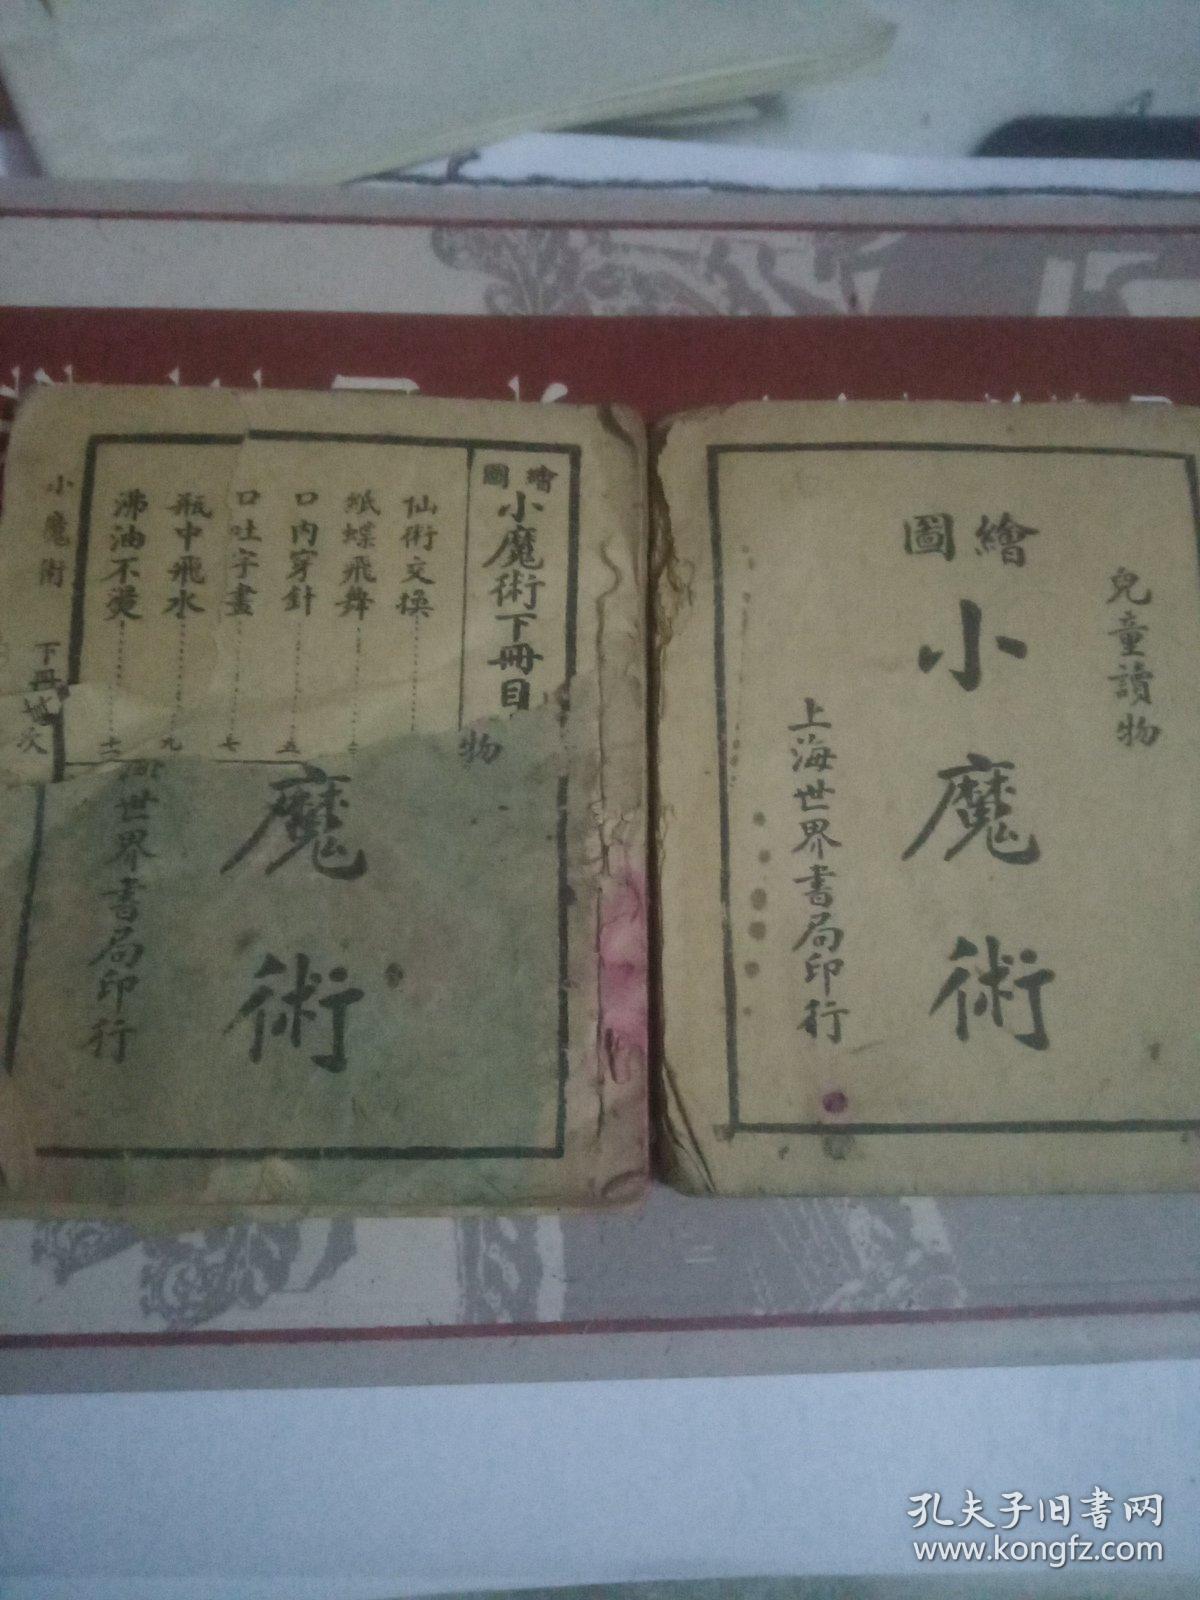 兒童讀物
繪圖
小魔術
上海世界書局印行
繪圖
小魔術下冊目
仙術交換
紙蝶飛舞
口內穿針 五
口吐字畫 七
瓶中飛水 九
沸油不燙 十一
小魔術 下冊 次
物
魔術
世界書局印行
孔夫子旧书网
www.kongfz.com